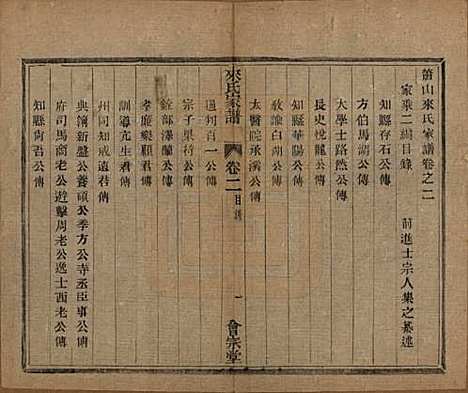 蕭山來氏家譜卷之二
家乘二編目錄
前進士宗人集之纂述
知縣存石公傳
方伯馬湖公傳
大學士路然公傳
長史悅龍公傳
知縣華陽公傳
教諭白湖公傳
太醫院承溪公傳
來氏家譜
卷二
目錄
一
會宗堂
通判百一公傳
宗子果符公傳
銓部澤蘭公傳
孝廉樂順君傳
訓導亢生君傳
州同知戒遠君傳
典籍新盤公養頑公季方公寺丞臣事公傳
府司馬商老公遊擊周老公逸士酉老公傳
知縣尚君公傳